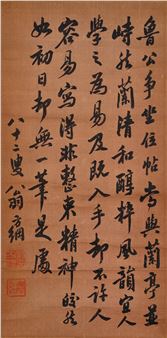 魯公爭坐位帖當與蘭亭並
峙然蘭清和醇粹風韻宜人
學之為易及既入手却不許人
容易寫得非整束精神皎然
如初日却無一筆是處
八十二叟翁方綱